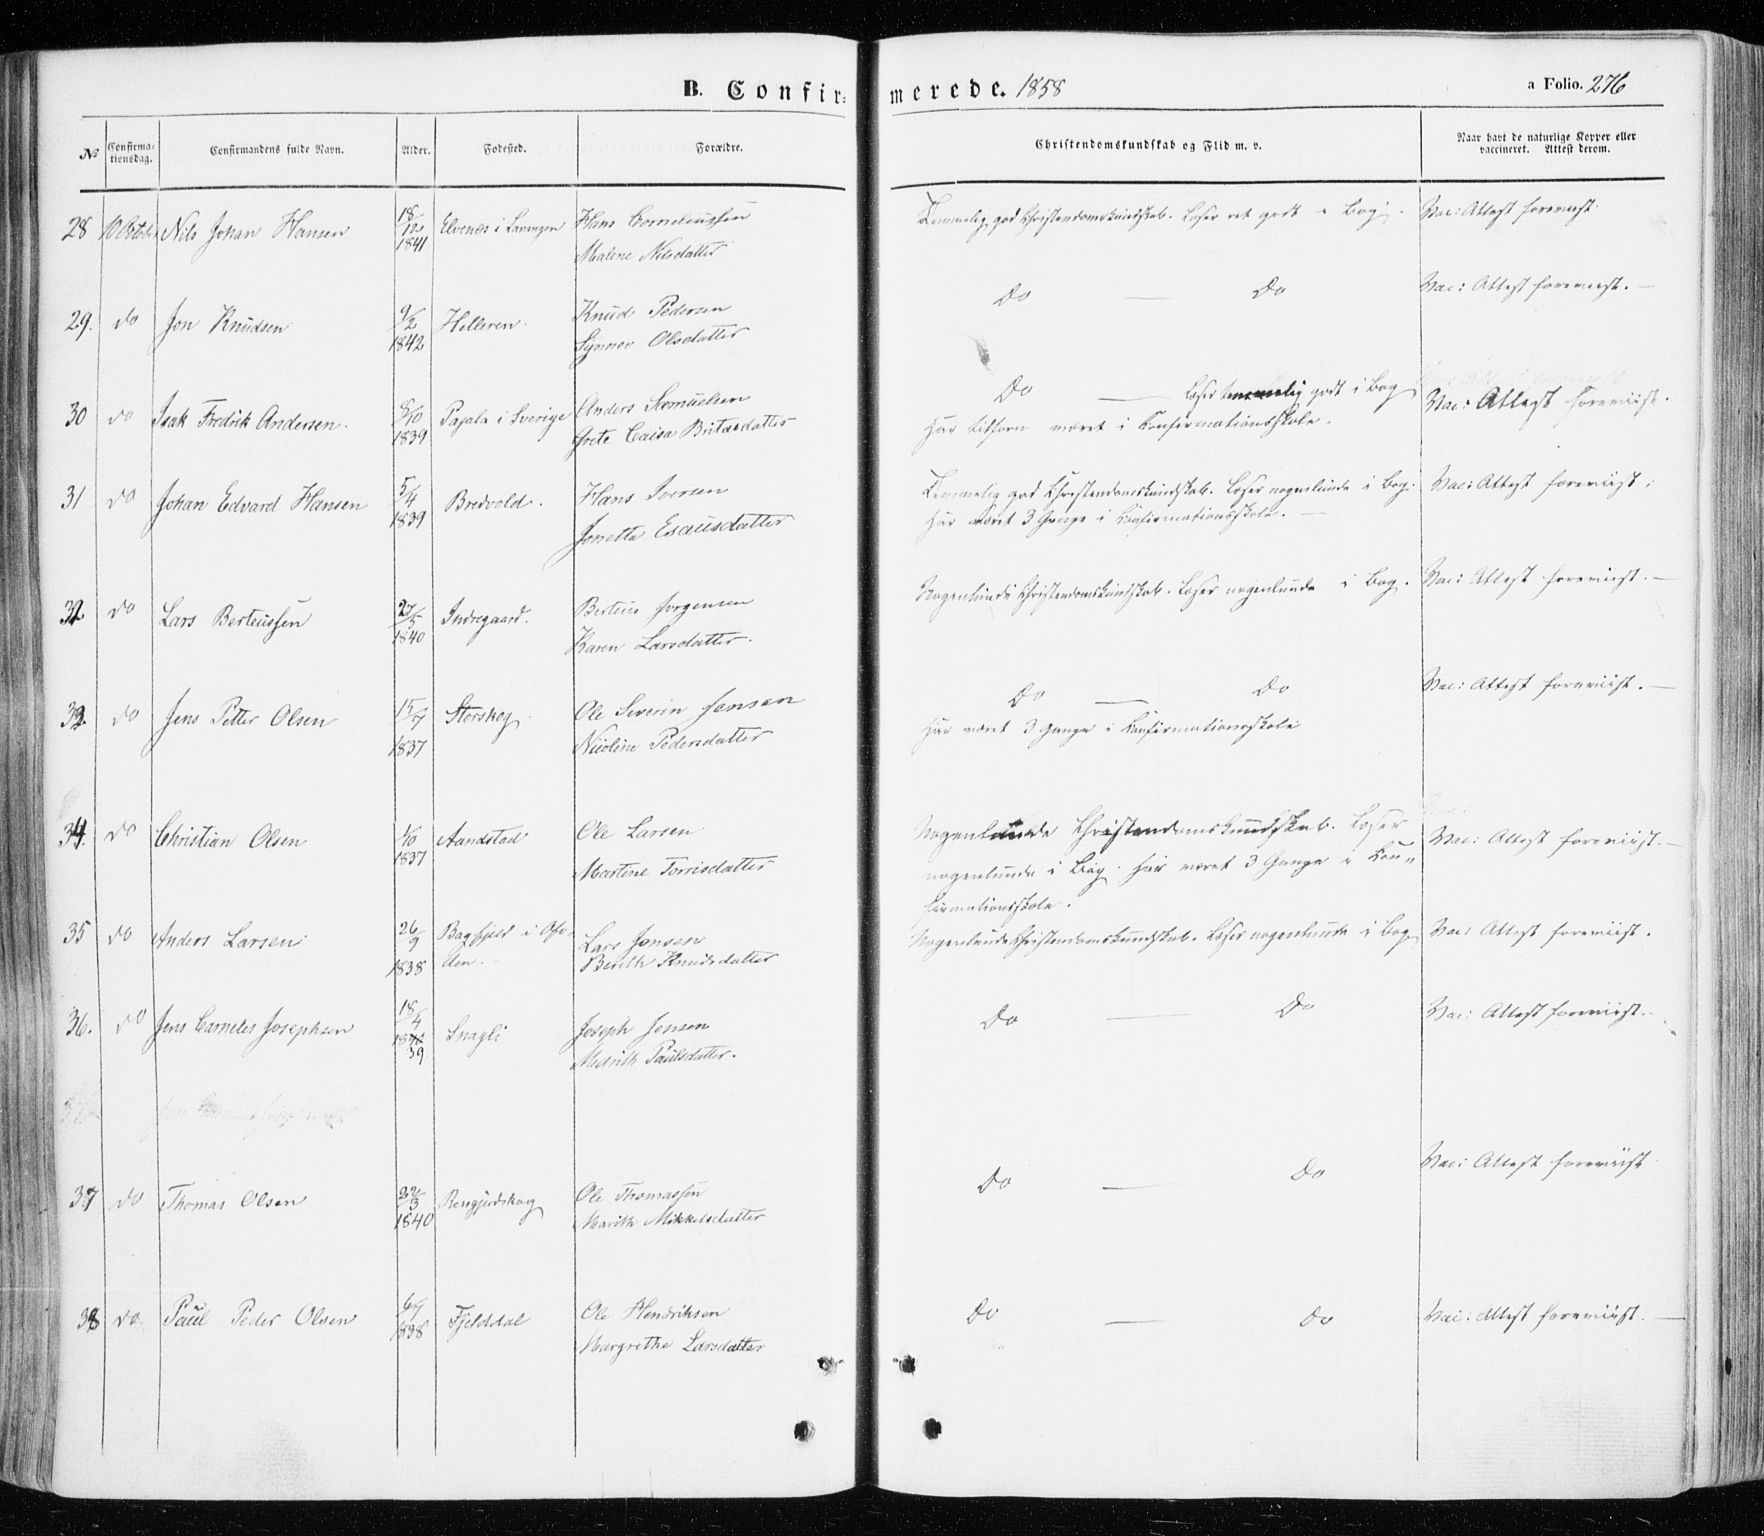 B. Confirmerede. 1858
a Folio. 276
№ Confirmationsdag. Confirmandens fulde Navn. Alder. Fødested. Forældre. Christendomskundskab og Flid m. v. Naar havt de naturlige Kopper eller vaccineret. Attest derom.
28 10 Octob. Nils Johan Hansen 18/12 1841 Elvenæs i Lavangen Hans Corneliussen
Malene Nilsdatter
Temmelig god Christendomskundskab. Læser ret godt i Bog. Vac: Attest foreviist.
29. do Jon Knudsen 9/2 1842 Helleren. Knud Pedersen
Synnev Olsdatter
Do — Do Vac: Attest foreviist. —
30 do Isak Fredrik Andersen. 8/10 1839 Pajala i Sverige Anders Samuelsen
Grete Caisa Britasdatter
Do — Læser temmelig godt i Bog Vac: Attest foreviist.
Har tilforn været i Confirmationsskole.
31 do Johan Edvard Hansen 5/4 1839 Bredvold. Hans Iversen
Jonetta Esausdatter
Temmelig god Christendomskundskab. Læser nogenlunde i Bog. Vac: Attest foreviist.
Har været 3 Gange i Confirmationsskole. —
32. do Lars Berteussen 27/5 1840 Indregaard. Berteus Jørgensen
Karen Larsdatter.
Nogenlunde Christendomskundskab. Læser nogenlunde i Bog. Vac: Attest foreviist. —
33. do Jens Petter Olsen 15/7 1837 Storskog Ole Severin Jensen
Nicoline Pedersdatter
Do — Do Vac: Attest foreviist. —
Har været 3 Gange i Confirmationsskole
34. do Christian Olsen 1/10 1837 Aandstad Ole Larsen
Martine Torrisdatter
Nogenlunde Christendomskundskab. Læser Vac: Attest foreviist. —
nogenlunde i Bog. Har været 3 Gange i Con-
firmationsskole.
35 do Anders Larsen 26/9 1838 Bagfjeld i Ofoden. Lars Jonsen
Berith Knudsdatter
Nogenlunde Christendomskundskab. Læser nogenlunde i Bog Vac: Attest foreviist.
36. do Jens Carneles Josephsen 18/4 39. Snagli Joseph Jensen
Medrith Paulsdatter.
Do — Do Vac: Attest foreviist. —
37 do Thomas Olsen 22/3 1840 Ole Thomassen
Marith Mikkelsdatter
Do — Do Vac: Attest foreviist
38 do Paul Peder Olsen 6/7 1838 Fjelddal Ole Hendriksen
Margrethe Larsdatter
Do — Do Vac: Attest foreviist. —